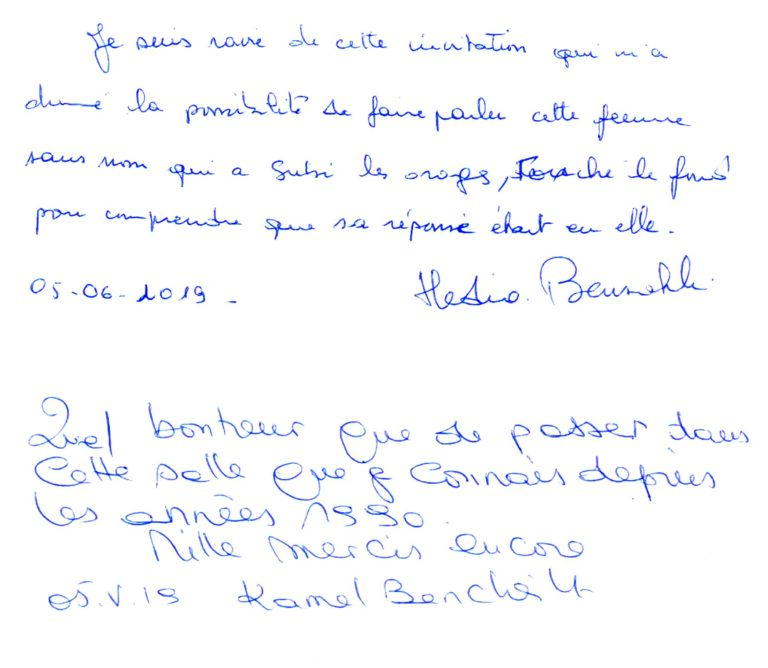 Je suis ravie de cette invitation qui m'a
donné la possibilité de faire parler cette femme
sans nom qui a subi les orages, touché le fond
pour comprendre que sa réponse était en elle.
05-06-2019-
Quel bonheur que de passer dans
cette salle que je connais depuis
les années 1990.
Mille mercis encore
05.V.19 Kamel Bencheikh